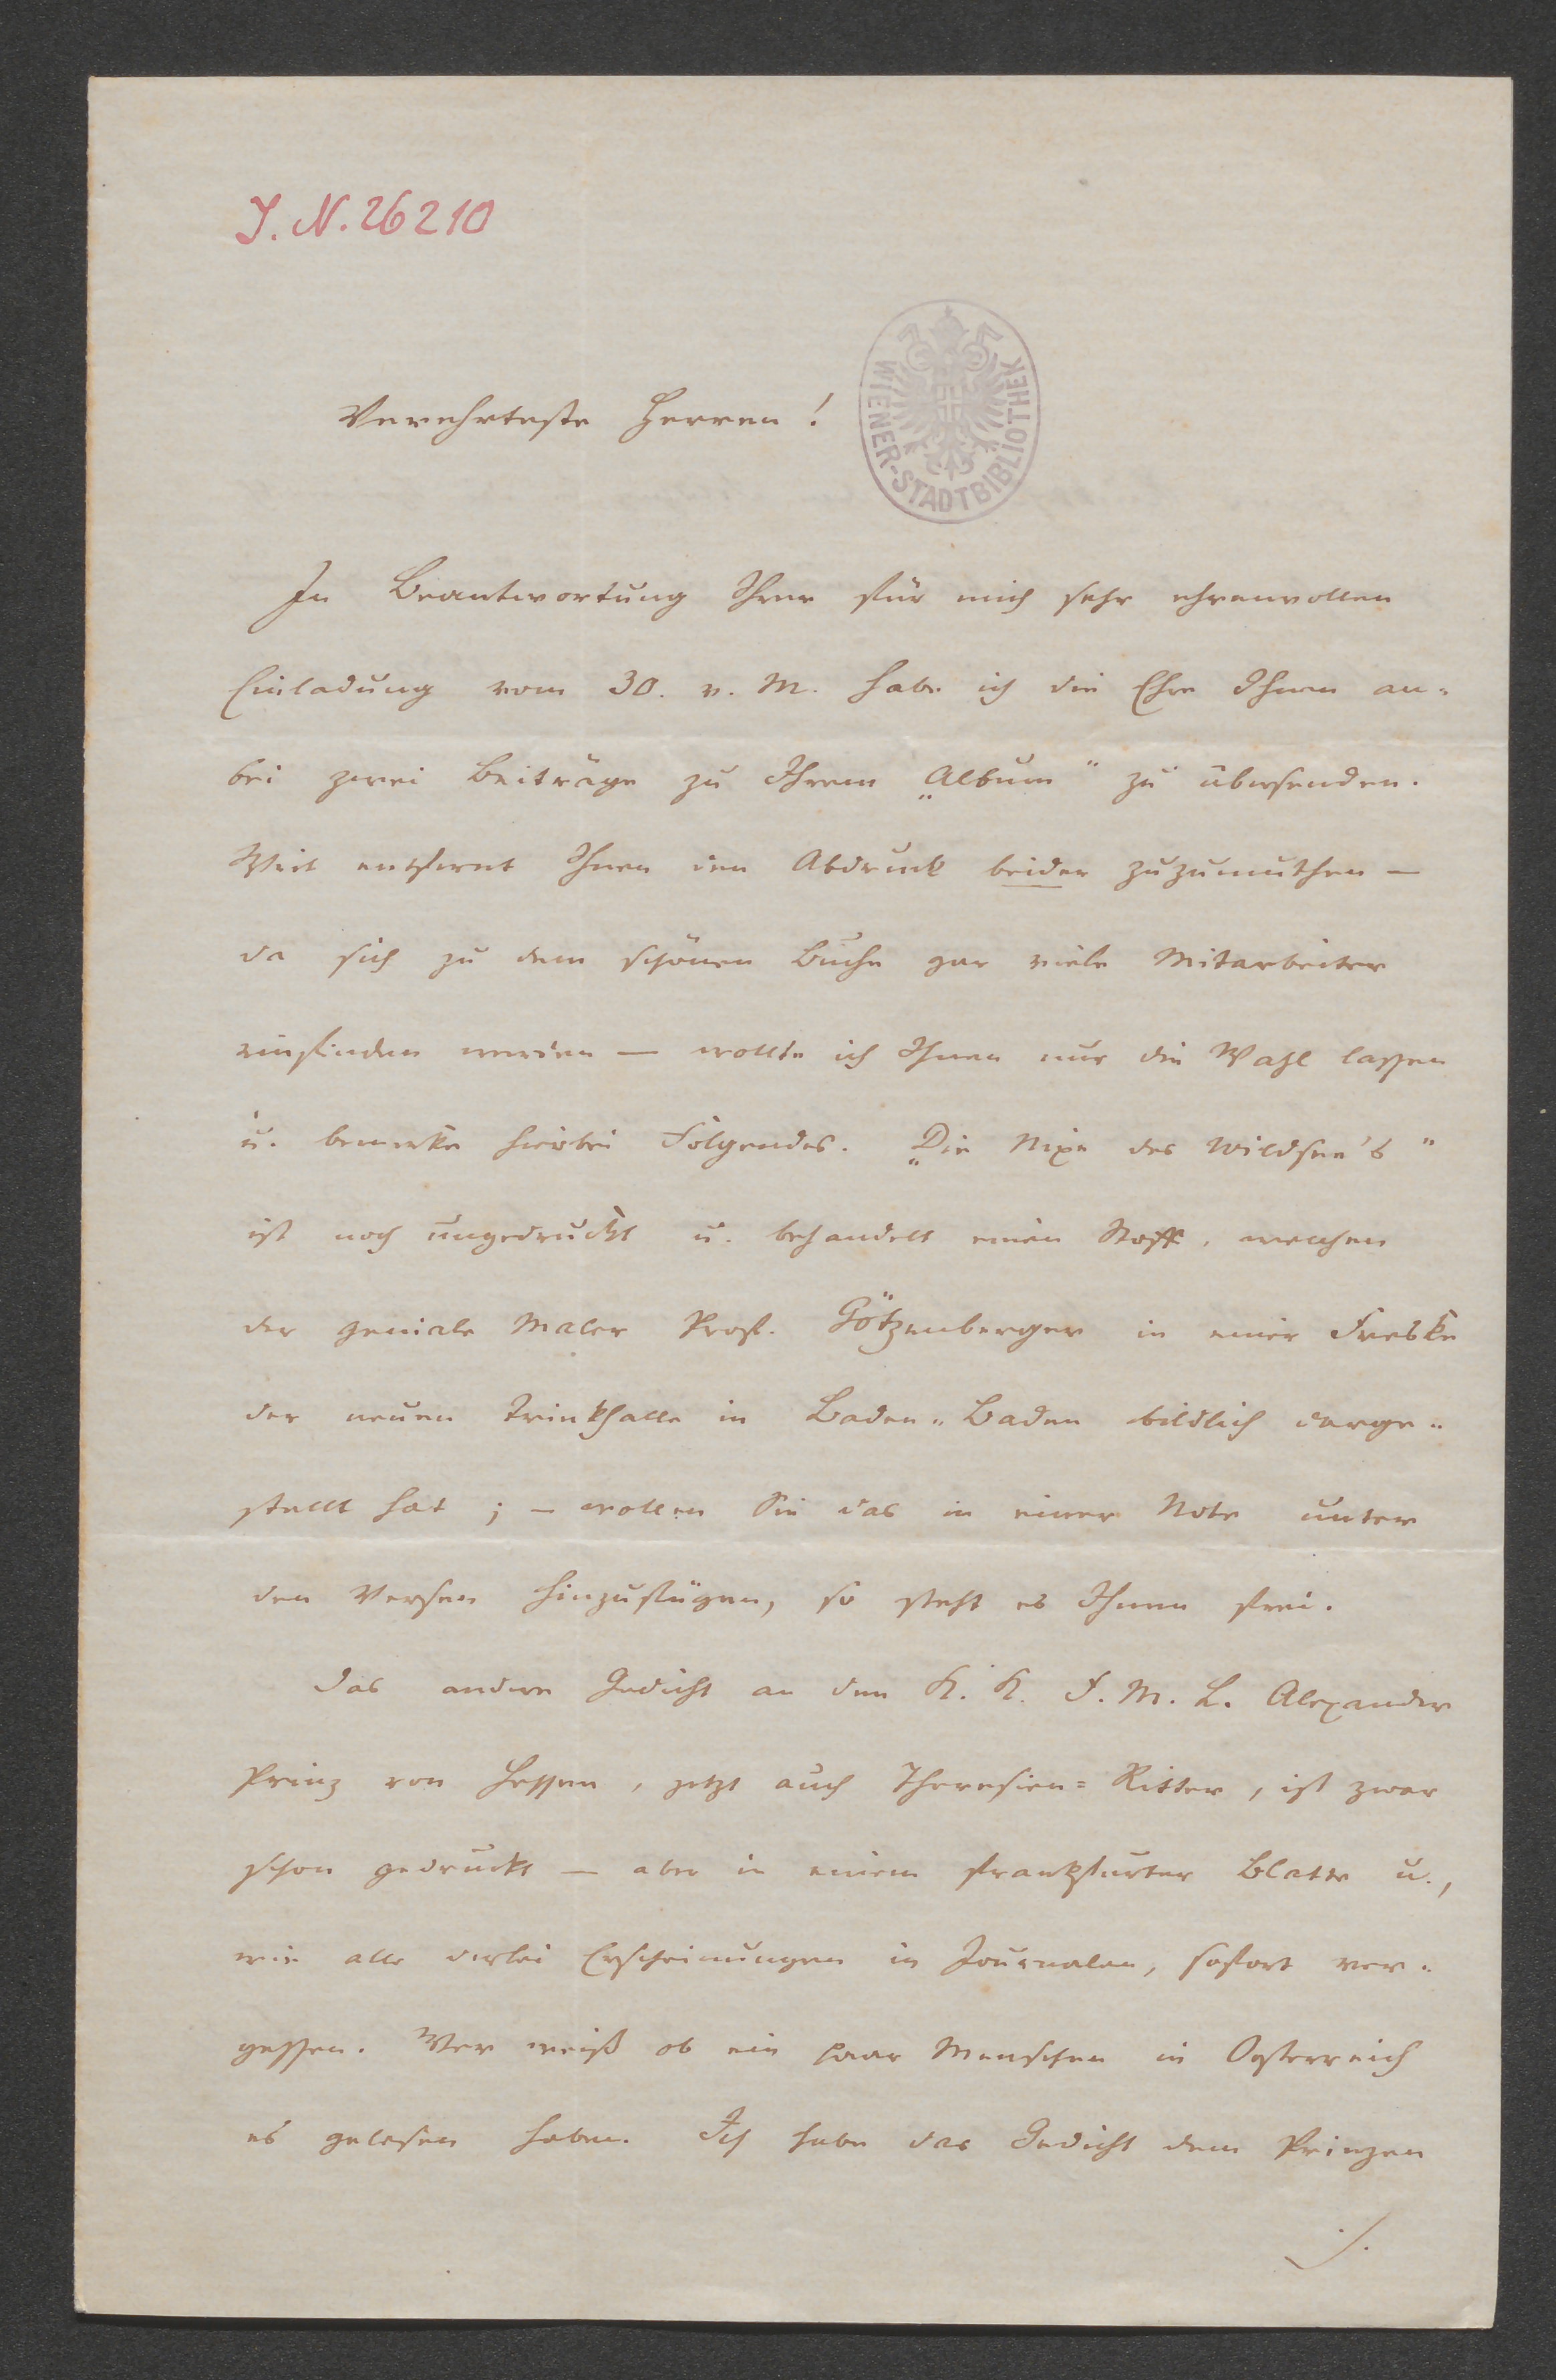 J. N. 26210
WIENER-STADTBIBLIOTHEK
Verehrteste Herren!
In Beantwortung Ihrer für mich sehr ehrenvollen
Einladung vom 30. v. M. habe ich die Ehre Ihnen an-
bei zwei Beiträge zu Ihrem „Album" zu übersenden.
Weit entfernt Ihnen den Abdruck beider zuzumuthen —
da sich zu dem schönen Buche gar viele Mitarbeiter
einfinden werden — wollte ich Ihnen nur die Wahl lassen
u. bemerke hierbei Folgendes. „Die Nixe des Wildsee's"
ist noch ungedruckt u. behandelt einen Stoff, welchen
der geniale Maler Prof. Götzenberger in einer Freske
der neuen Trinkhalle in Baden-Baden bildlich darge-
stellt hat; — wollen Sie das in einer Note unter
den Versen hinzufügen, so steht es Ihnen frei.
Das andere Gedicht an den K. K. F. M. L. Alexander
Prinz von Hessen, jetzt auch Theresien=Ritter, ist zwar
schon gedruckt — aber in einem Frankfurter Blatte u.,
wie alle derlei Erscheinungen in Journalen, sofort ver-
gessen. Wer weiß ob ein paar Menschen in Oesterreich
es gelesen haben. Ich habe das Gedicht dem Prinzen
./.